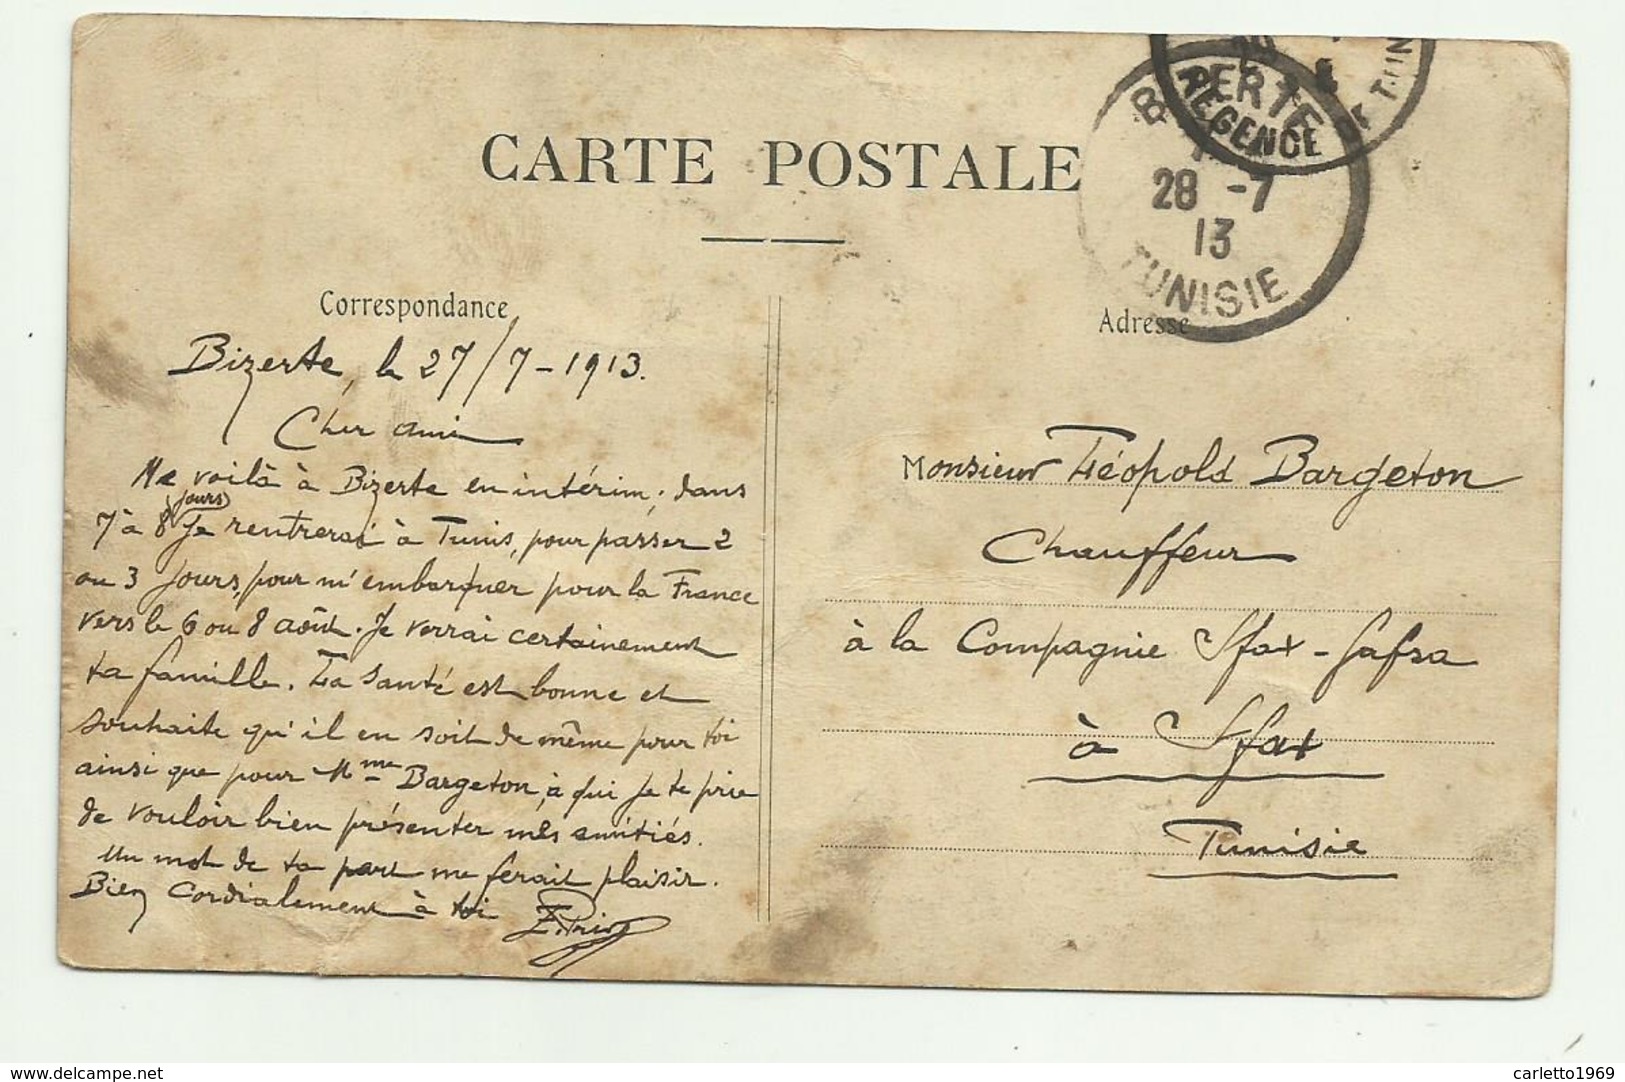 CARTE POSTALE
BIZERTE
28 -7
13
TUNISIE
REGENCE DE TUN
Correspondance
Bizerte, le 27/7-1913.
Cher ami
Me voilà à Bizerte en intérim; dans
7 à 8 jours je rentrerai à Tunis, pour passer 2
ou 3 jours, pour m'embarquer pour la France
vers le 6 ou 8 août. Je verrai certainement
ta famille. La santé est bonne et
souhaite qu'il en soit de même pour toi
ainsi que pour Mme Bargeton, à qui je te prie
de vouloir bien présenter mes amitiés.
Un mot de ta part me ferait plaisir.
Bien cordialement à toi
Adresse
Monsieur Léopold Bargeton
Chauffeur
à la Compagnie Sfax-Gafsa
à Sfax
Tunisie
www.delcampe.net
carletto1969